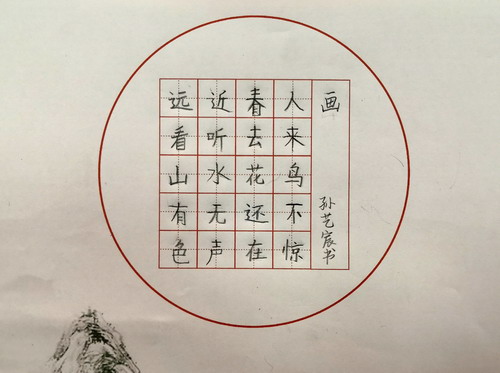 画
远看山有色
近听水无声
春去花还在
人来鸟不惊
孙艺宸书